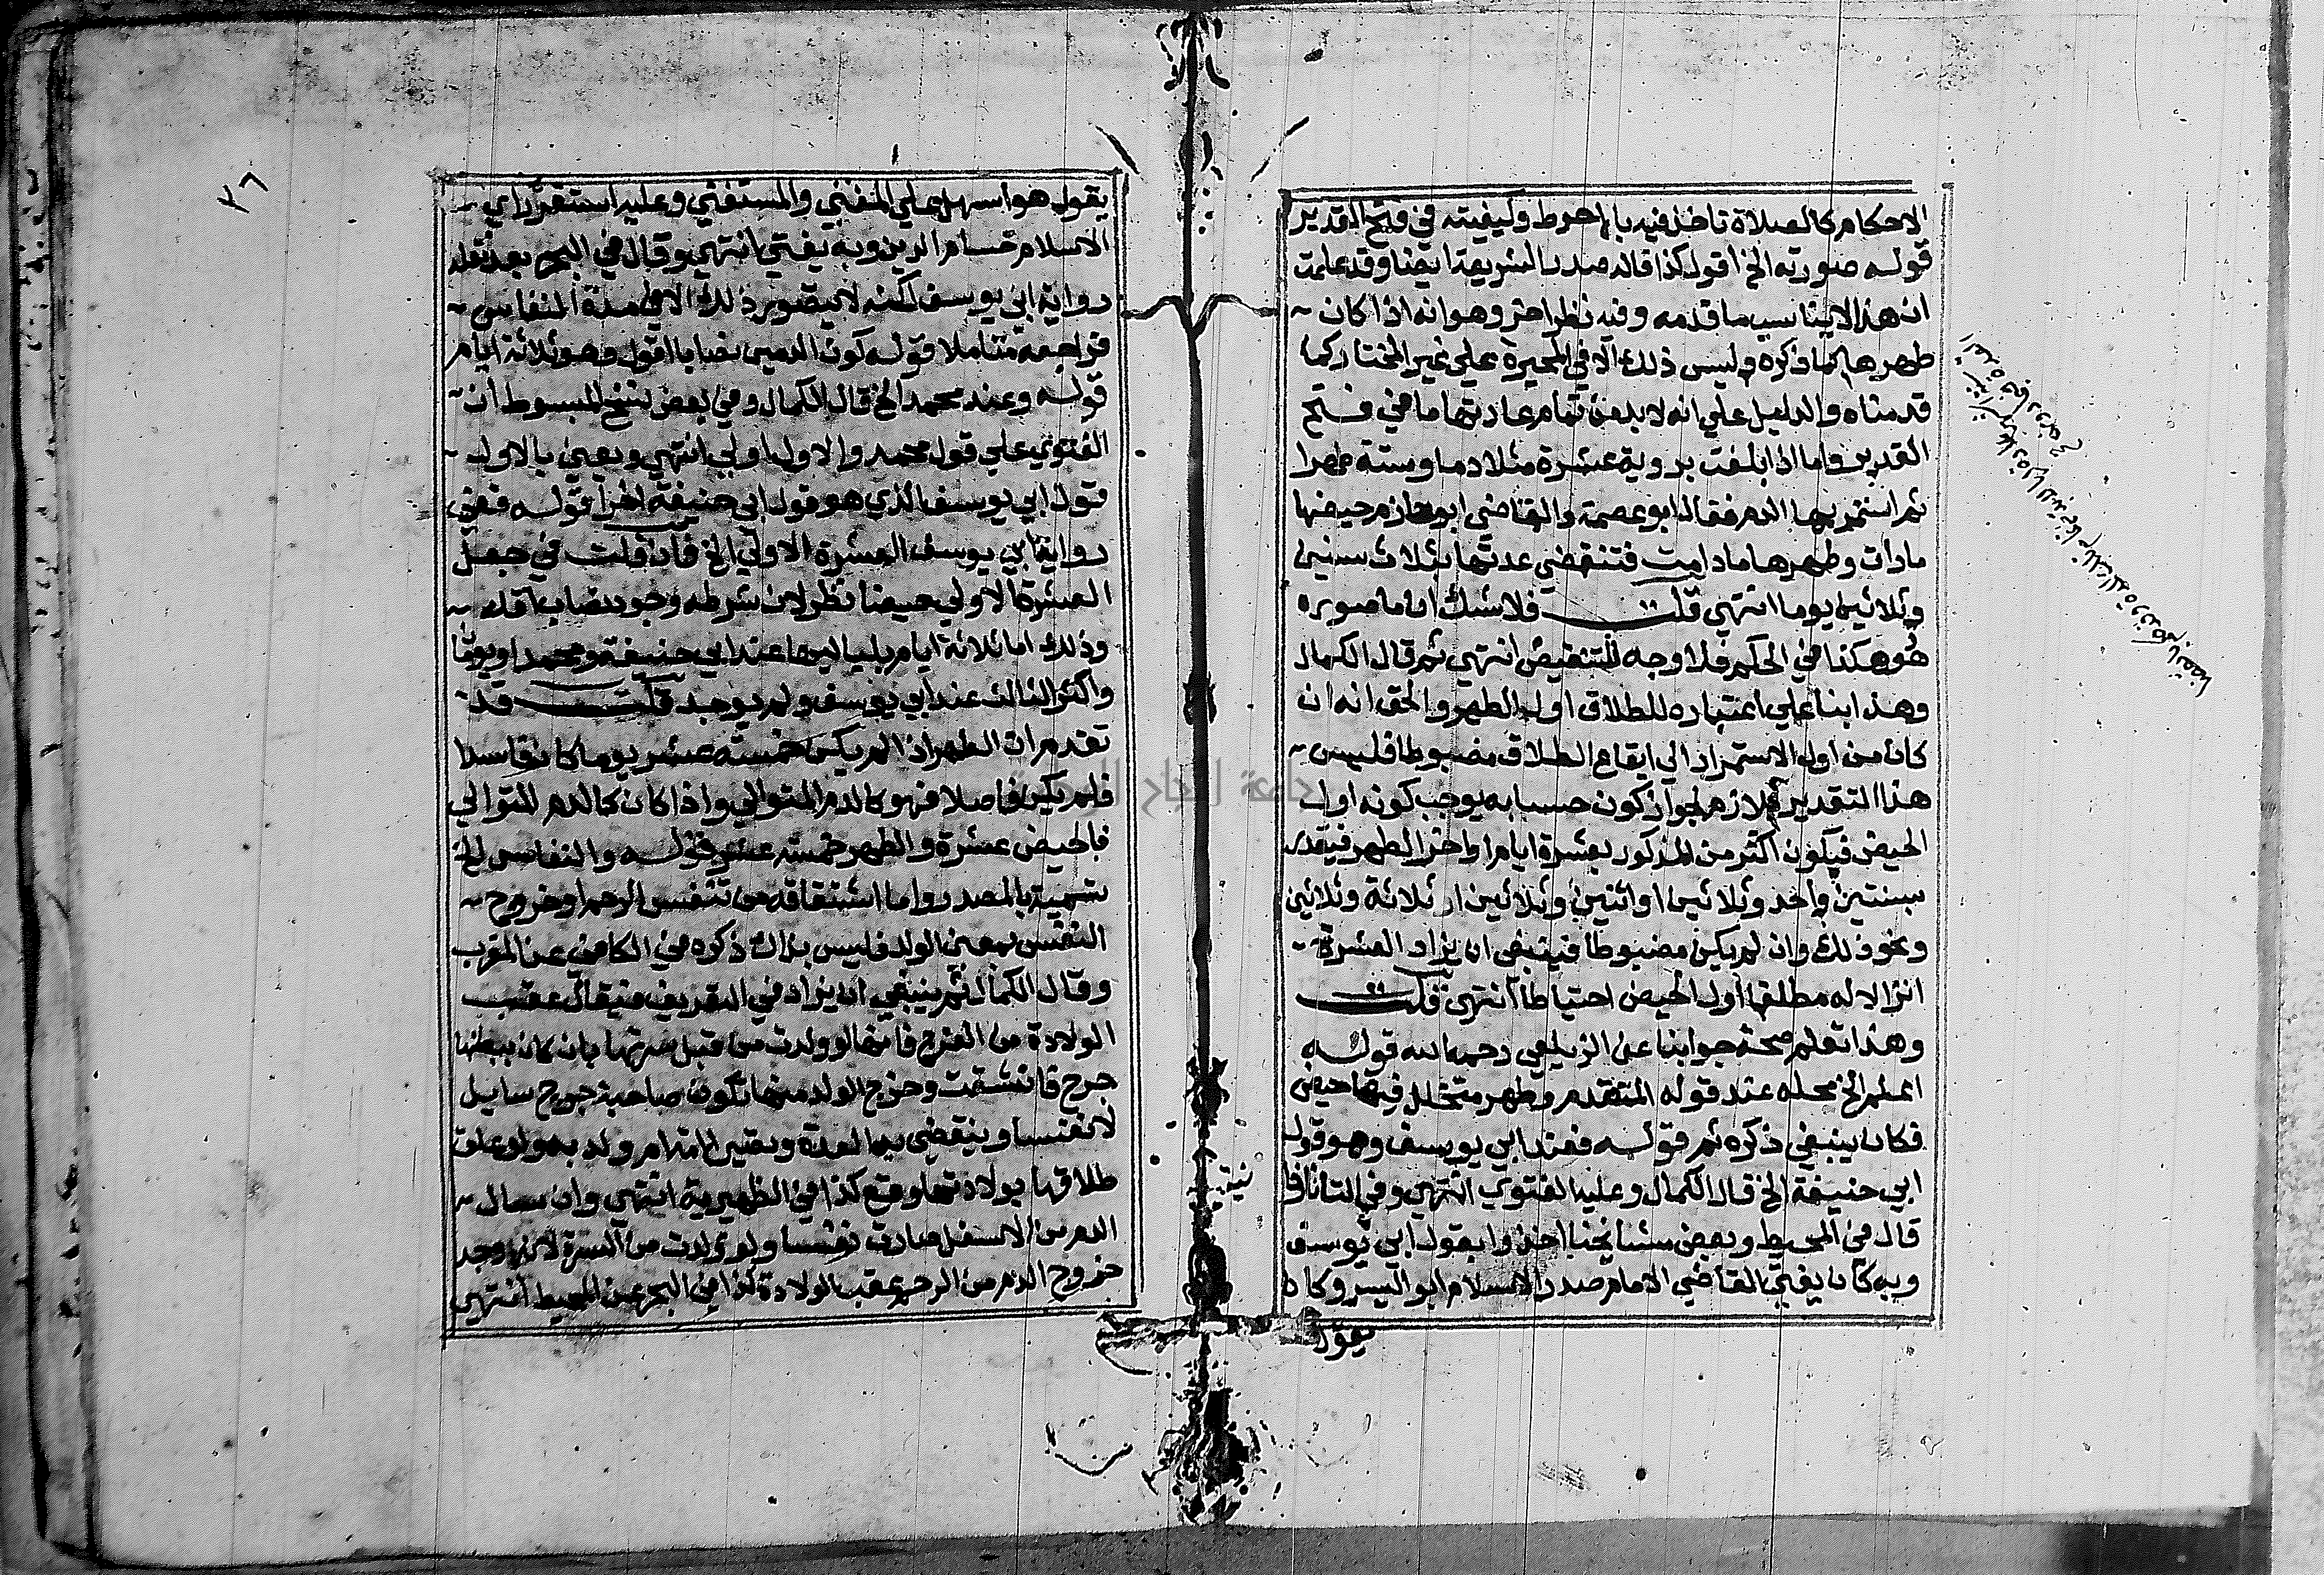 الاحكام كالصلاة تاخذ فيه بالاحوط وكيفيته في فتح القدير
قوله صورته الخ اقول كذا قاله صدر الشريعة ايضا وقد علمت
ان هذا لايناسب ما قدمه وفيه نظر اخر وهو انه اذا كان
طهرها كما ذكره وليس ذلك الا في المحيرة علي غير المختار كما
قدمناه والدليل علي انه لا بد من تمام عادتها ما في فتح
القدير واما اذا بلغت بروية عشرة مثلا دما وستة طهرا
ثم استمر بها الدم فقال ابو عصمة والقاضي ابو حازم حيضها
مارات وطهرها مارات فتنقضي عدتها بثلاث سنين
وثلاثين يوما انتهي قلت فلا شك ان ما صوره
هو هكذا في الحكم فلا وجه للتنقيص انتهي ثم قال الكمال
وهذا بنا علي اعتباره للطلاق اول الطهر والحق انه ان
كان من اول الاستمرار الي ايقاع الطلاق مضبوطا فليس
هذا التقدير بلازم لجواز كون حسابه يوجب كونه اول
الحيض فيكون اكثر من المذكور بعشرة ايام او اخر الطهر فيقدر
بسنتين واحد وثلاثين او اثنين وثلاثين او ثلاثة وثلاثين
ونحو ذلك وان لم يكن مضبوطا فينبغي ان يزاد العشرة
انزالا له مطلقا اول الحيض احتياطا انتهي قلت
وهذا تعلم صحة جوابنا عن الزيلعي رحمه الله قوله
اعلم الخ محله عند قوله المتقدم وطهر متخلل فيها حيض
فكان ينبغي ذكره ثم قوله فعند ابي يوسف وهو قول
ابي حنيفة الخ قال الكمال وعليه الفتوي انتهي وفي التاتارخا
نية
قال في المحيط وبعض مشايخنا اخذوا بقول ابي يوسف
وبه كان يفتي القاضي الامام صدر الاسلام ابو اليسر وكان
يقول
٣٦
يقول هو اسهل علي المفتي والمستفتي وعليه استقر راي
الاسلام حسام الدين وبه يفتي انتهي وقال في البحر بعد نقله
رواية ابي يوسف لكنه لا يتصور ذلك الا في مدة النفاس
فراجعه متاملا قوله كون الدمين نصابا اقول وهو ثلاثة ايام
قوله وعند محمد الخ قال الكمال وفي بعض نسخ المبسوط ان
الفتوي علي قول محمد والاول اولي انتهي ويعني بالاول
قول ابي يوسف الذي هو قول ابي حنيفة اخرا قوله ففي
رواية ابي يوسف العشرة الاولي الخ فان قلت في جعل
العشرة الاولي حيضا نظر لان شرطه وجود نصاب اقله
وذلك اما ثلاثة ايام بلياليها عند ابي حنيفة ومحمد او يومان
واكثر الثالث عند ابي يوسف ولم يوجد قلت قد
تقدم ان الطهر اذا لم يكن خمسة عشر يوما كان فاسدا
فلم يكن فاصلا فهو كالدم المتوالي واذا كان كالدم المتوالي
فالحيض عشرة والطهر خمسة عشر قوله والنفاس الخ
تسمية بالمصدر واما اشتقاقه من تنفس الرحم او خروج
النفس بمعني الولد فليس بذاك ذكره في الكافي عن المغرب
وقال الكمال ثم ينبغي ان يزاد في التعريف فيقال عقب
الولادة من الفرج فانها لو ولدت من قبل سرتها بان كان ببطنها
جرح فانشقت وخرج الولد منها تكون صاحبة جرح سايل
لا نفسا وينقضي به العدة وتصير الامة ام ولد به ولو علق
طلاقها بولادتها وقع كذا في الظهيرية انتهي وان سال
الدم من الاسفل صارت نفسا ولو ولدت من السرة لانه وجد
خروج الدم من الرحم عقب الولادة كذا في البحر عن المحيط انتهي